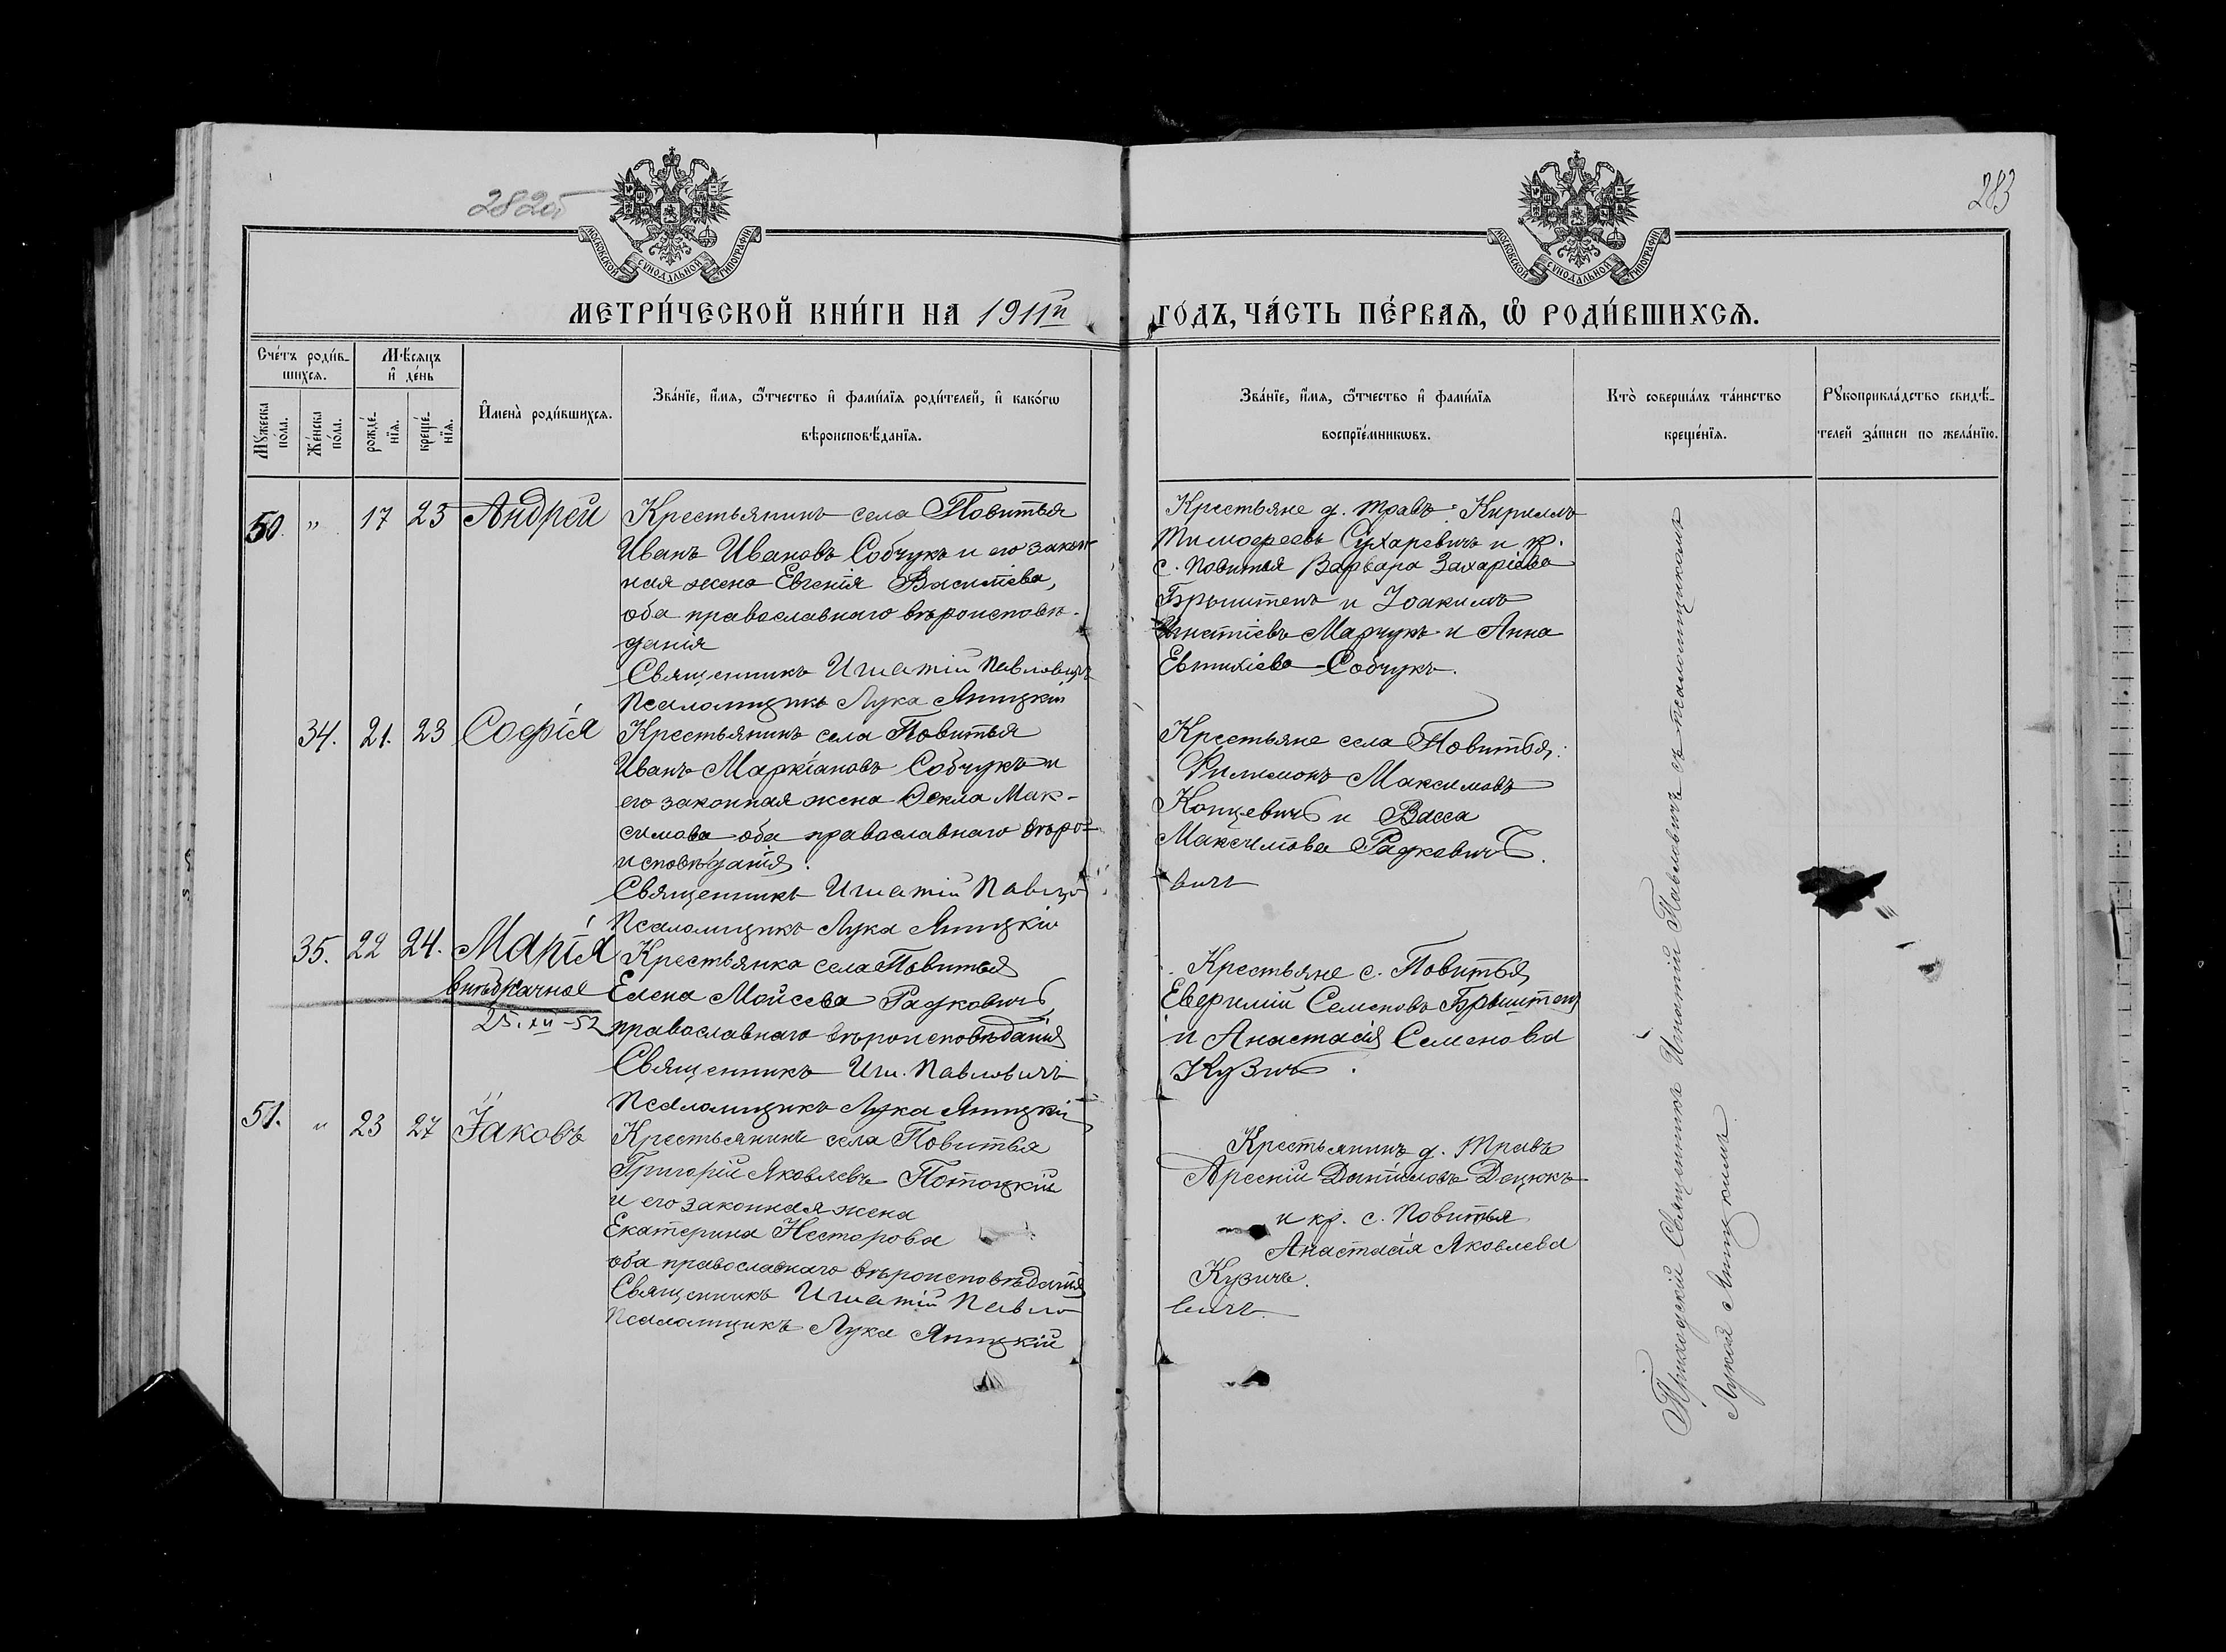 282об
283
МОСКОВСКОЙ СУНОДАЛЬНОЙ ТИПОГРАФІИ
МОСКОВСКОЙ СУНОДАЛЬНОЙ ТИПОГРАФІИ
МЕТРИ́ЧЕСКОЙ КНИ́ГИ НА 1911й
ГО́ДЪ, ЧА́СТЬ ПЕ́РВАѦ, Ѡ҆ РОДИ́ВШИХСѦ.
Сче́тъ роди́в-
шихсѧ.
Мѣ́сѧцъ
и҆ де́нь
Мꙋ́жеска
по́ла.
Же́нска
по́ла.
рожде́-
нїѧ.
креще́-
нїѧ.
И҆мена̀ роди́вшихсѧ.
Зва́нїе, и҆́мѧ, ѻ҆́тчество и҆ фами́лїѧ роди́телей, и҆ како́гѡ
вѣроисповѣ́данїѧ.
Зва́нїе, и҆́мѧ, ѻ҆́тчество и҆ фами́лїѧ
воспрїе́мникѡвъ.
Кто̀ соверша́лъ та́инство
креще́нїѧ.
Рꙋкоприкла́дство свидѣ́-
телей за́писи по жела́нїю.
50. " 17 23 Андрей
Крестьянинъ села Повитья
Иванъ Ивановъ Собчукъ и его закон-
ная жена Евгенія Василіева,
оба православнаго вѣроисповѣ-
данія
Священникъ Игнатій Павловичъ
Псаломщикъ Лука Япицкій
Крестьяне д. Травъ: Кириллъ
Тимофеевъ Сухаревичъ и кр.
с. Повитья Варвара Захаріева
Брыштенъ и Іоакимъ
Игнатіевъ Марчукъ и Анна
Евтихіева Собчукъ.
34. 21. 23 Софія
Крестьянинъ села Повитья
Иванъ Маркіановъ Собчукъ и
его законная жена Ѳекла Мак-
симова оба православнаго вѣро-
исповѣданія.
Священникъ Игнатій Павло
Псаломщикъ Лука Япицкій
Крестьяне села Повитья:
Филимонъ Максимовъ
Копцевичъ и Васса
Максимова Радковичъ.
вичъ
35. 22 24. Марія
внѣбрачная
25. XII-52
Крестьянка села Повитья
Елена Мойсеева Радковичъ
православнаго вѣроисповѣданія
Священникъ Игн. Павловичъ
Псаломщикъ Лука Япицкій
Крестьяне с. Повитья
Евфимій Семеновъ Брыштенъ
и Анастасія Семенова
Кузичъ.
51. " 23 27 Іаковъ
Крестьянинъ села Повитья
Григорій Яковлевъ Потоцкій
и его законная жена
Екатерина Несторова
оба православнаго вѣроисповѣданія
Священникъ Игнатій Павло
Псаломщикъ Лука Япицкій
Крестьянинъ д. Травъ
Арсеній Даниловъ Децюкъ
и кр. с. Повитья
Анастасія Яковлева
Кузичъ.
вичъ
Приходскій Священникъ Игнатій Павловичъ съ псаломщикомъ
Лукой Япицкимъ.